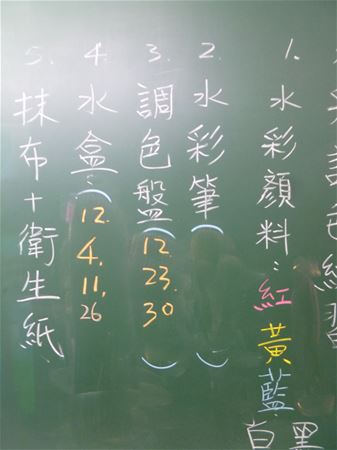 1. 水彩顏料：紅黃藍白黑
2. 水彩筆（ ）
3. 調色盤（12. 23. 30 ）
4. 水盒：（12. 4. 11. 26
5. 抹布+衛生紙